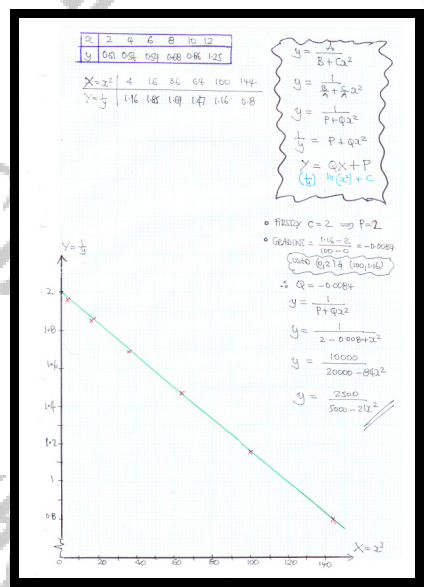 x 2 4 6 8 10 12
y 0.51 0.54 0.59 0.68 0.86 1.25
X=x² 4 16 36 64 100 144
Y=1/y 1.96 1.85 1.69 1.47 1.16 0.8
y = A/(B+Cx²)
y = 1/(B/A + C/A x²)
y = 1/(P+Qx²)
1/y = P+Qx²
Y = QX+P
(1/y) m(x²)+C
• FIRSTLY C=2 ⇒ P=2
• GRADIENT = (1.16-2)/(100-0) = -0.0084
(USED (0,2) & (100,1.16))
∴ Q = -0.0084
y = 1/(P+Qx²)
y = 1/(2-0.0084x²)
y = 10000/(20000-84x²)
y = 2500/(5000-21x²)
Y=1/y
2
1.8
1.6
1.4
1.2
1
0.8
0 20 40 60 80 100 120 140
X=x²